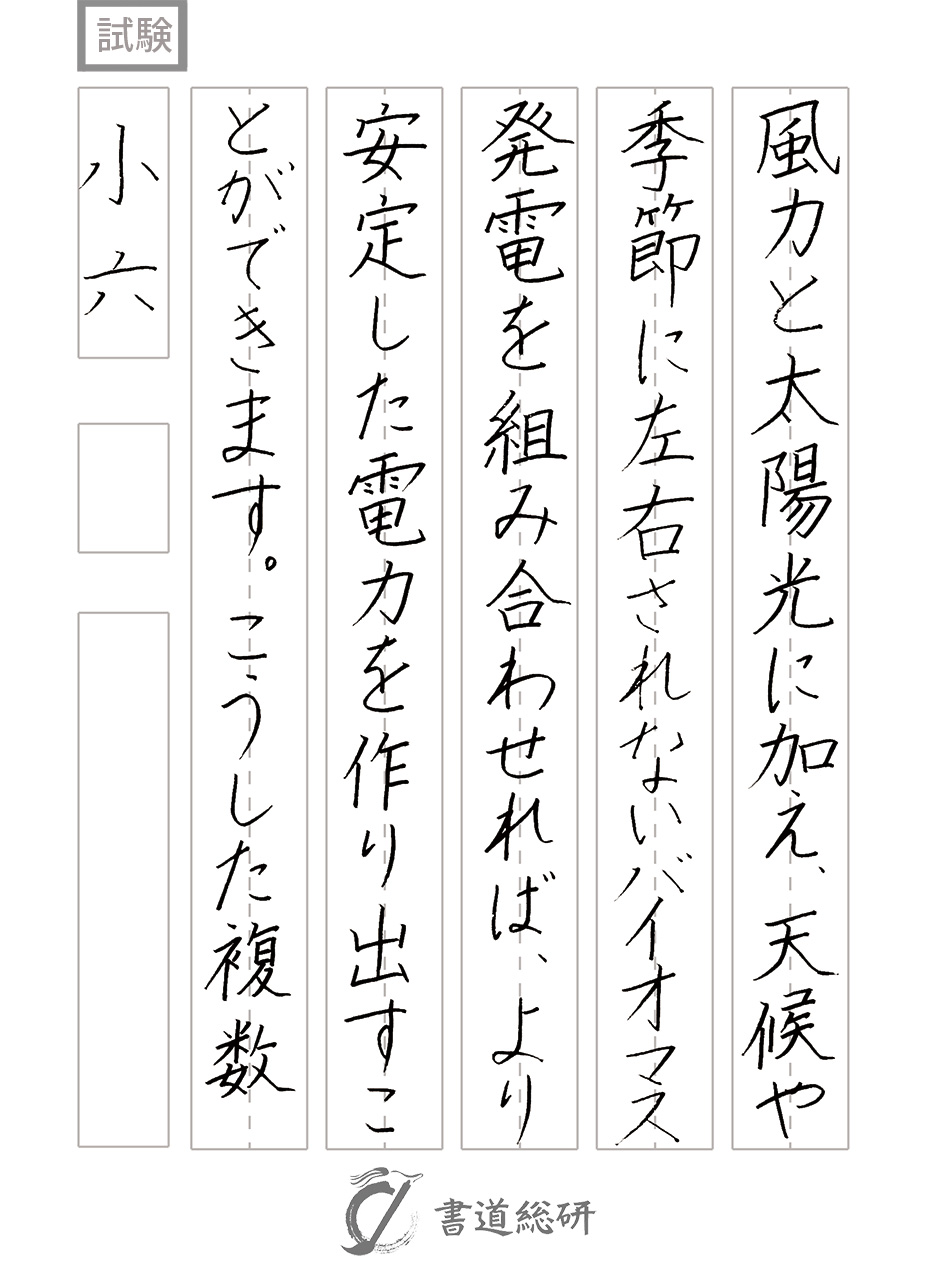 試験
風力と太陽光に加え、天候や
季節に左右されないバイオマス
発電を組み合わせれば、より
安定した電力を作り出すこ
とができます。こうした複数
小六
書道総研